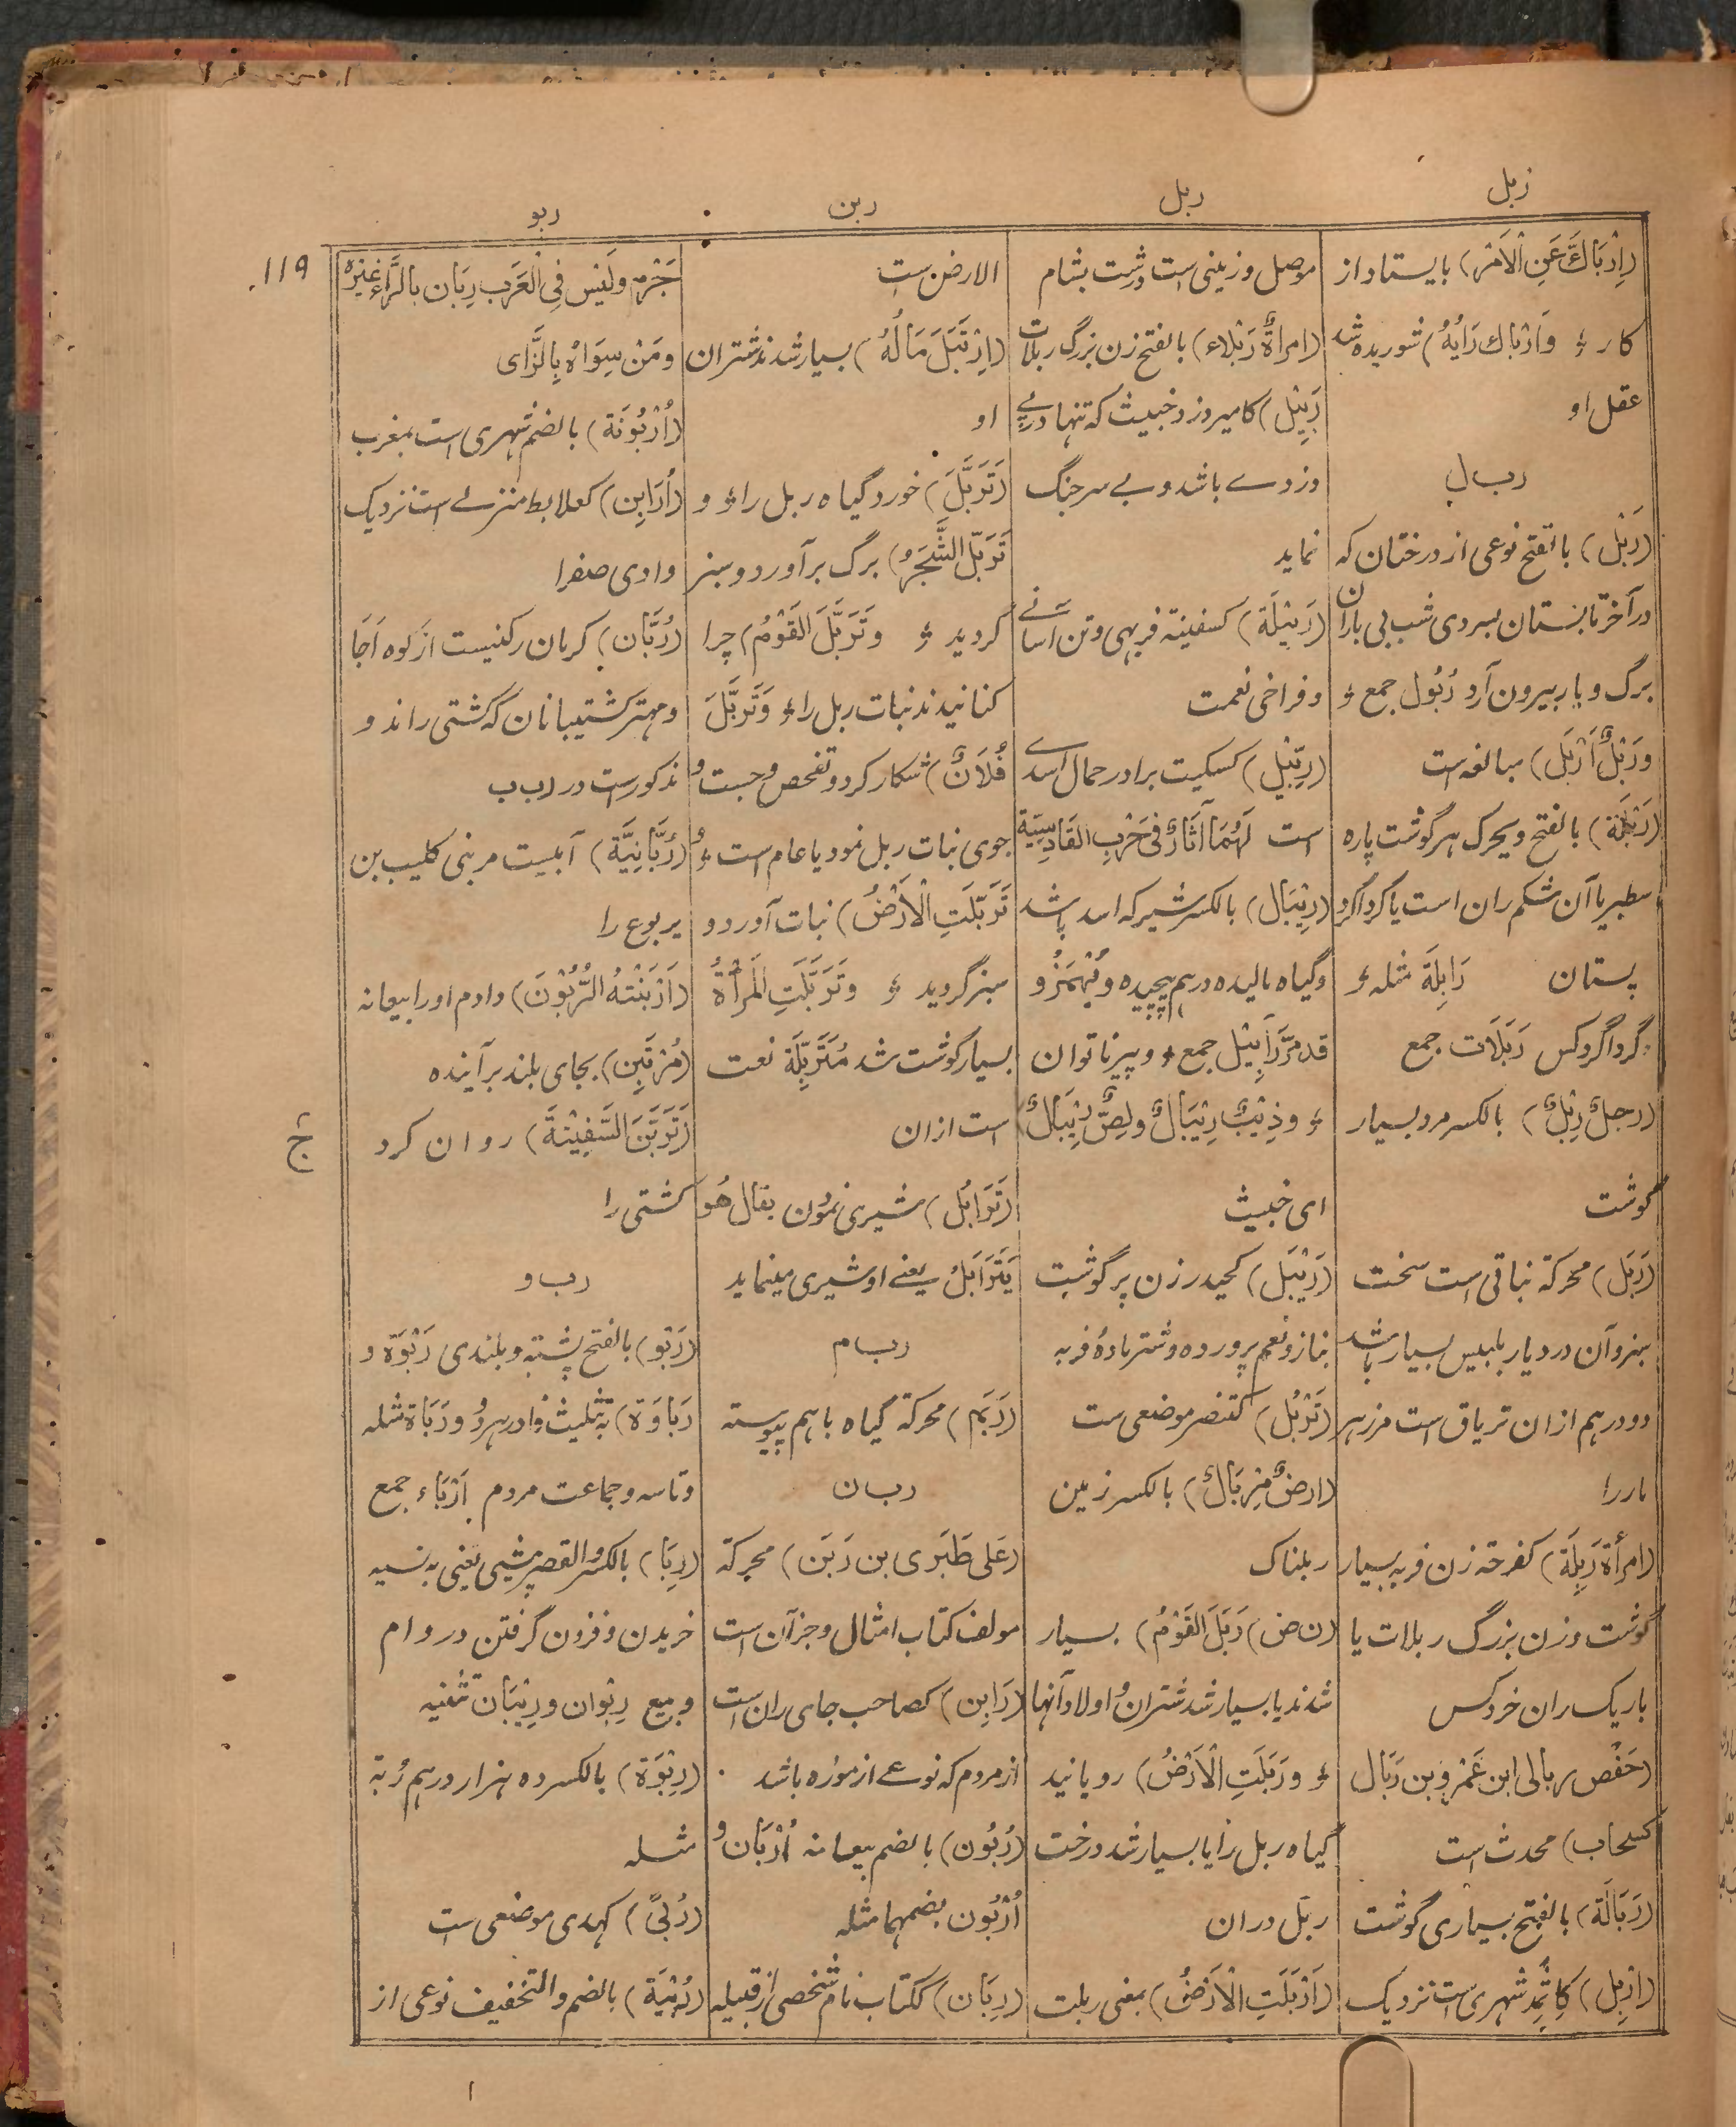 زبل
ربل
ربن
ربو
۱۱۹
(اِرْبَاكَّ عَنِ الْاَمْرِ) بایستاد از
کار ؛ وَارْبَاكَ رَأيُهُ) شوریده شد
عقل او
رب ل
(رَبْل) بالفتح نوعی از درختان که
در آخر تابستان بسردی شب بی باران
برگ و بار بیرون آرد رُبُول جمع ؛
وَرَبْلٌ اَرْبَل) مبالغه است
(رَبْلَة) بالفتح ویحرک هر گوشت پاره
سطبر یا آن شکم ران است یا گرداگرد
پستان رَابِلَة مثله ؛
گرداگرد کس رَبَلَات جمع
(رجلٌ رِبْلٌ) بالکسر مرد بسیار
گوشت
(رَبَل) محرکة نباتی است سخت
سبز و آن در دیار بلبیس بسیار باشد
دو درهم ازان تریاق است مر زهر
مار را
(امرأة رَبِلَة) کفرحة زن فربه بسیار
گوشت و زن بزرگ ربلات یا
باریک ران خرد کس
(حَفْص ربالی ابن عَمْرو بن رَبَال
کسحاب) محدث است
(رَبَالَة) بالفتح بسیاری گوشت
(اِرْبِل) کاِثْمِد شهری است نزدیک
موصل و زمینی است و رُشت بشام
(امرأةٌ رَبْلاء) بالفتح زن بزرگ ربلات
رَبِيْل) کامیر دزد خبیث که تنها در پے
دزدے باشد و بے سر جنگ
نماید
(رَبِيْلَة) کسفینة فربهی و تن آسانے
و فراخی نعمت
(رِبِّيْل) کسکیت برادر حمال اسدے
است لَهُمَا آثَارٌ فِی حَرْبِ القَادِسِیَّة
(رِيْبَال) بالکسر شیر که اسد باشد
و گیاه بالیده درهم پیچیده ویُهْمَزُ و
قد مَرَّ رَآبِيْل جمع ؛ و پیر ناتوان
؛ وذِئْبٌ رِيْبَالٌ ولِصٌّ رِيْبَالٌ)
ای خبیث
(رَيْبَل) کحیدر زن پرگوشت
بناز و نعم پرورده و شتر مادهٔ فربه
(تَرْبُل) کتنصر موضعی ست
(ارضٌ مِرْبَالٌ) بالکسر زمین
ربلناک
(ن ض) رَبَلَ القَوْمُ) بسیار
شدند یا بسیار شد شتران و اولاد آنها
؛ ورَبَلَتِ الْاَرْضُ) رویانید
گیاه ربل را یا بسیار شد درخت
ربل دران
(اَرْبَلَتِ الْاَرْضُ) بمعنی ربلت
الارض ست
(اِرْتَبَلَ مَالُهُ) بسیار شدند شتران
او
(تَرَبَّلَ) خورد گیاه ربل را ؛ و
تَرَبَّلَ الشَّجَرُ) برگ برآورد و سبز
گردید ؛ وتَرَبَّلَ القَوْمُ) چرا
کنانیدند نبات ربل را ؛ وَتَرَبَّلَ
فُلَانٌ) شکار کرد و تفحص و جست و
جوی نبات ربل نمود یا عام است ؛ و
تَرَبَّلَتِ الْاَرْضُ) نبات آورد و
سبز گردید ؛ وتَرَبَّلَتِ المَرأَةُ
بسیار گوشت شد مُتَرَبِّلَة نعت
است ازان
(تَرَابُل) شیری نمودن یقال هُوَ
يَتَرَابَلُ یعنے او شیری مینماید
رب م
(رَبَم) محرکة گیاه باهم پیوسته
رب ن
(عَلی طَبَری بن رَبَن) محرکة
مولف کتاب امثال و جز آن است
(رَابِن) کصاحب جای ران است
از مردم که نوعے از موزه باشد
(رُبُون) بالضم بیعانه اُرْبَان و
اُرْبُون بضمهما مثله
(رِبَان) ککتاب نام شخصی از قبیله
جَرْم ولَیْسَ فِی الْعَرَب رِبَان بِالرَّاء غَیْرَه
ومَنْ سِوَاهُ بِالزَّای
(اُرْبُونَة) بالضم شهری است بمغرب
(اُرَابِن) کعلابط منزلے است نزدیک
وادی صفرا
(رُبَّان) کرمان رکنیست از کوه اَجَا
و مهتر کشتیبانان که کشتی راند و
مذکور است در رب ب
(رُبَّانِیَّة) آبیست مر بنی کلیب بن
یربوع را
(اَرْبَنْتُهُ الرُّبُونَ) دادم او را بیعانه
(مُرْتَبِن) بجای بلند برآینده
(تَرَبَّنَ السَّفِيْنَةَ) روان کرد
ج
کشتی را
رب و
(رَبْو) بالفتح پشته و بلندی رَبْوَة و
رَبَاوَة) بتثلیث را در هر دو ورَبَاة مثله
و تاسه و جماعت مردم اَرْبَاء جمع
(رِبَا) بالکسر والقصر بیشی یعنی به نسیه
خریدن و فزون گرفتن در وام
و بیع رِبَوان ورِبَيَان تثنیه
(رِبْوَة) بالکسر ده هزار درهم رُبَة
مثله
(رُبًی) کهدی موضعی است
(رُبْيَة) بالضم والتخفیف نوعی از